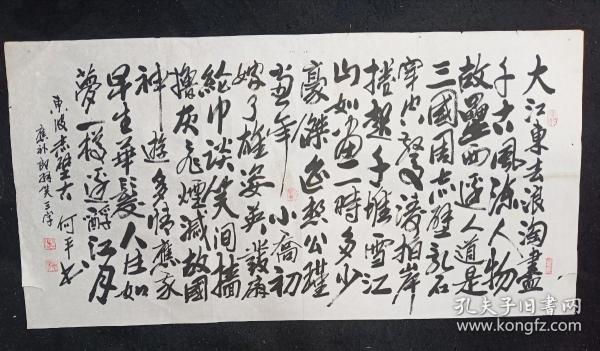 大江東去浪淘盡
千古風流人物
故壘西邊人道是
三國周赤壁亂石
穿空驚濤拍岸
捲起千堆雪江
山如畫一時多少
豪傑遙想公瑾
當年小喬初
嫁了雄姿英發羽
綸巾談笑間牆
櫓灰飛煙滅故國
神遊多情應笑
早生華髮人生如
夢一樽還酹江月
東坡赤壁古 何平書
孔夫子旧书网
www.kongfz.com